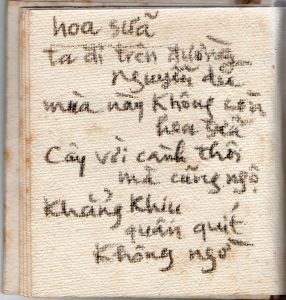 hoa sữa
ta đi trên đường
Nguyễn du
mùa này không còn
hoa sữa
Cây với cành thôi
mà cũng ngộ
Khẳng Khiu
quấn quít
Không ngờ